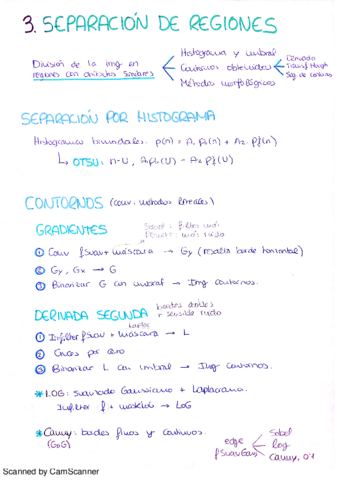 3. SEPARACIÓN DE REGIONES
División de la img en regiones con atributos similares
Histograma y umbral
Contornos obtenidos
Métodos morfológicos
Derivada
Transf Hough
Seg de contornos
SEPARACIÓN POR HISTOGRAMA
Histogramas bimodales: p(n) = A₁ p₁(n) + A₂ p₂(n)
↳ OTSU: n-U, A₁p₁(U) = A₂ p₂(U)
CONTORNOS (conv: métodos lineales)
GRADIENTES
Sobel: filtra más
Prewitt: más ruido
① Conv fsuav + máscara → Gy (resalta borde horizontal)
② Gy, Gx → G
③ Binarizar G con umbral → Img contornos.
DERIVADA SEGUNDA
bordes dobles
+ sensible ruido
Laplac
① Imfilter fsuav + máscara → L
② Cruces por cero
③ Binarizar L con umbral → Img contornos.
* LOG: suavizado Gaussiano + Laplaciana.
Imfilter f + maskLoG → LoG
* Canny: bordes finos y continuos.
(GoG)
edge
fsuavGau
Sobel
log
Canny, 0.1
Scanned by CamScanner